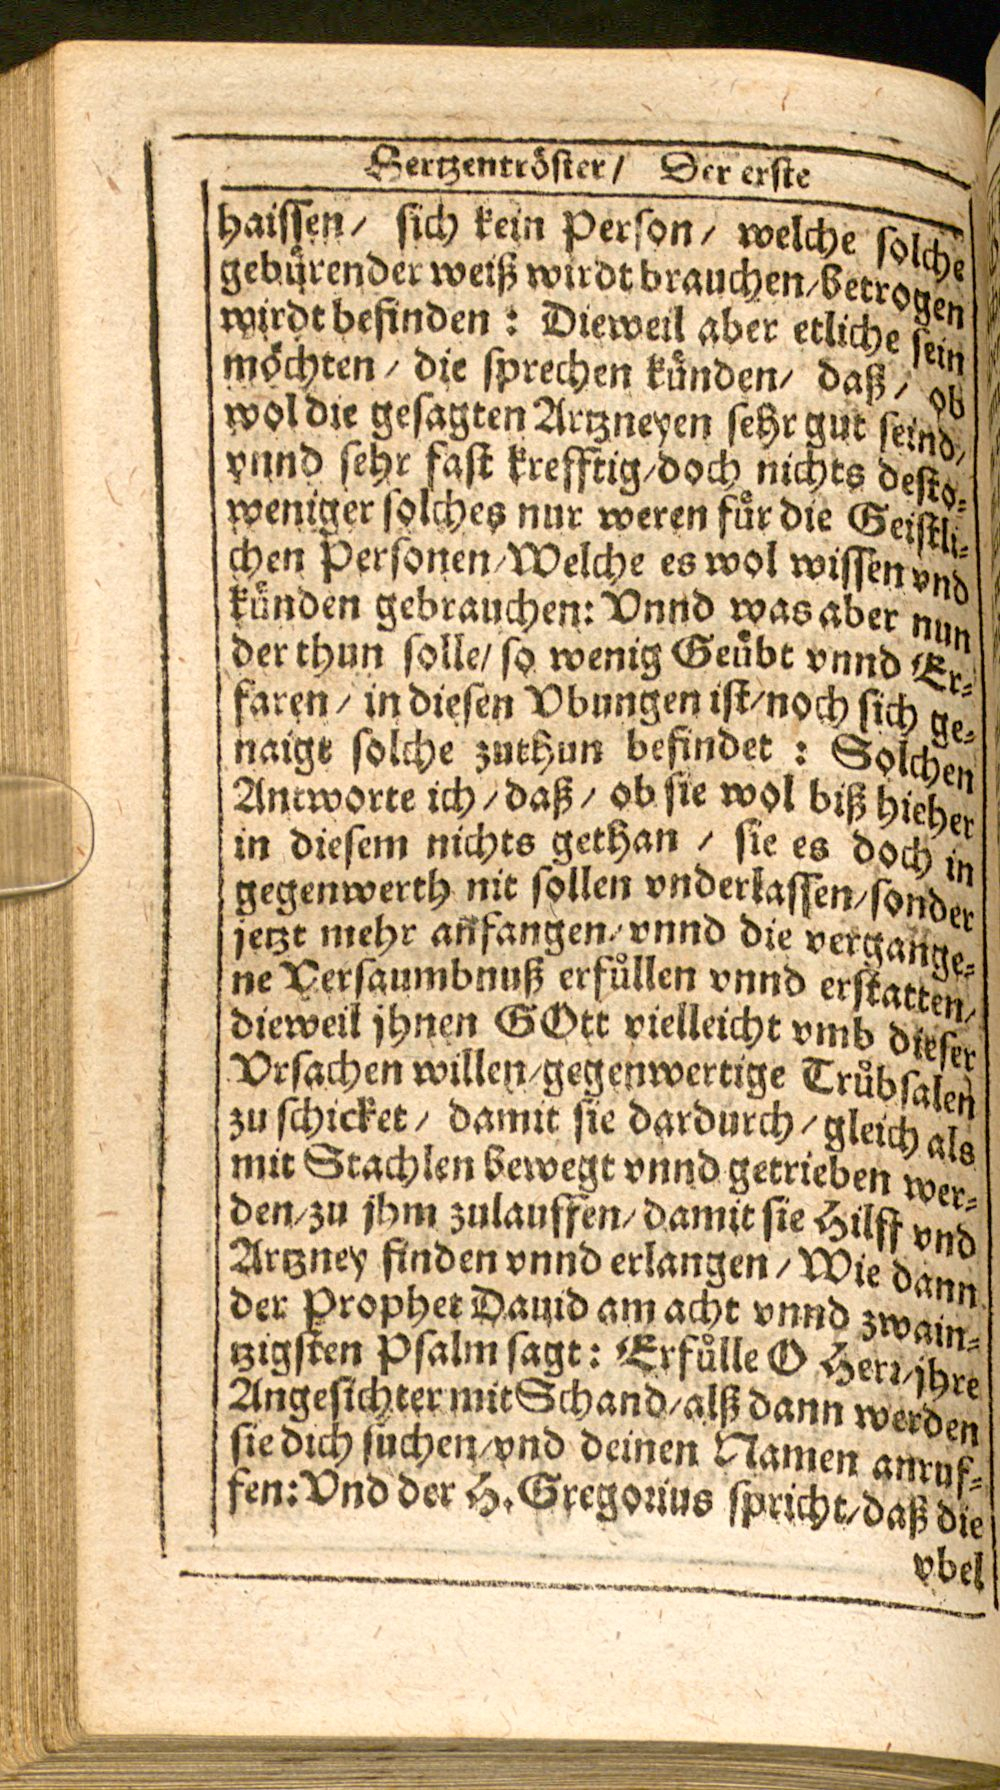 Hertzentröster/ Der erste
haissen/ sich kein Person/ welche solche
gebürender weiß wirdt brauchen/betrogen
wirdt befinden: Dieweil aber etliche sein
möchten/ die sprechen künden/ daß/ ob
wol die gesagten Artzneyen sehr gut seind/
vnnd sehr fast krefftig/doch nichts desto-
weniger solches nur weren für die Geistli-
chen Personen/Welche es wol wissen vnd
künden gebrauchen: Vnnd was aber nun
der thun solle/ so wenig Geübt vnnd Er-
faren/ in diesen Vbungen ist/noch sich ge-
naigt solche zuthun befindet: Solchen
Antworte ich/daß/ ob sie wol biß hieher
in diesem nichts gethan/ sie es doch in
gegenwerth nit sollen vnderlassen/sonder
jetzt mehr anfangen/vnnd die vergange-
ne Versaumbnuß erfüllen vnnd erstatten/
dieweil jhnen GOtt vielleicht vmb dieser
Vrsachen willen/gegenwertige Trübsalen
zu schicket/ damit sie dardurch/gleich als
mit Stachlen bewegt vnnd getrieben wer-
den/zu jhm zulauffen/damit sie Hilff vnd
Artzney finden vnnd erlangen/Wie dann
der Prophet Dauid am acht vnnd zwain-
tzigsten Psalm sagt: Erfülle O Herr/jhre
Angesichter mit Schand/alß dann werden
sie dich suchen/vnd deinen Namen anruf-
fen: Vnd der H. Gregorius spricht/daß die
vbel